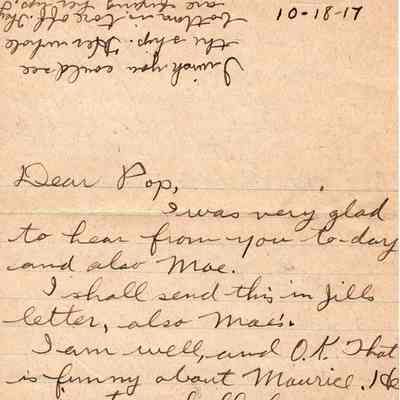 10-18-17
I wish you could see
the ship. Her whole
bottom is tore off. They
are
Dear Pop,
I was very glad
to hear from you to-day
and also Mae.
I shall send this in Jills
letter, also Mae's.
I am well, and O.K. That
is funny about Maurice. He